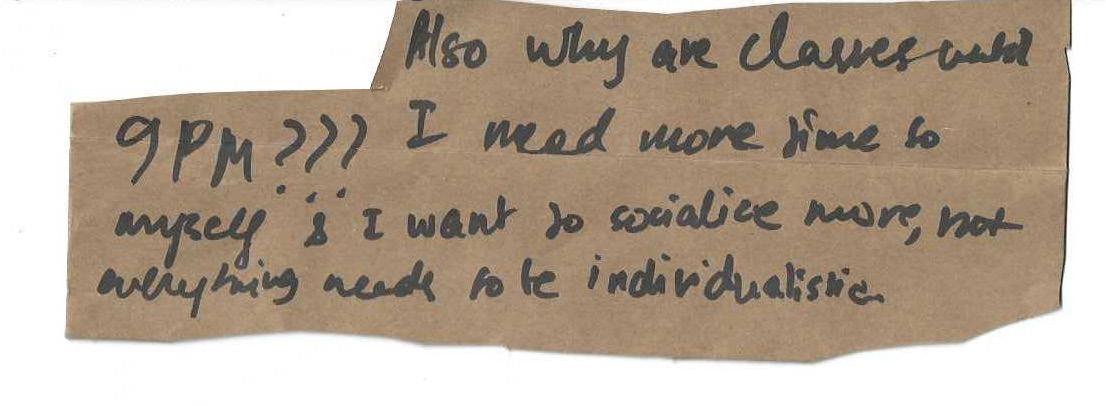 Also why are classes until
9 PM ??? I need more time to
myself & I want to socialice more, not
everything needs to be individualistic.